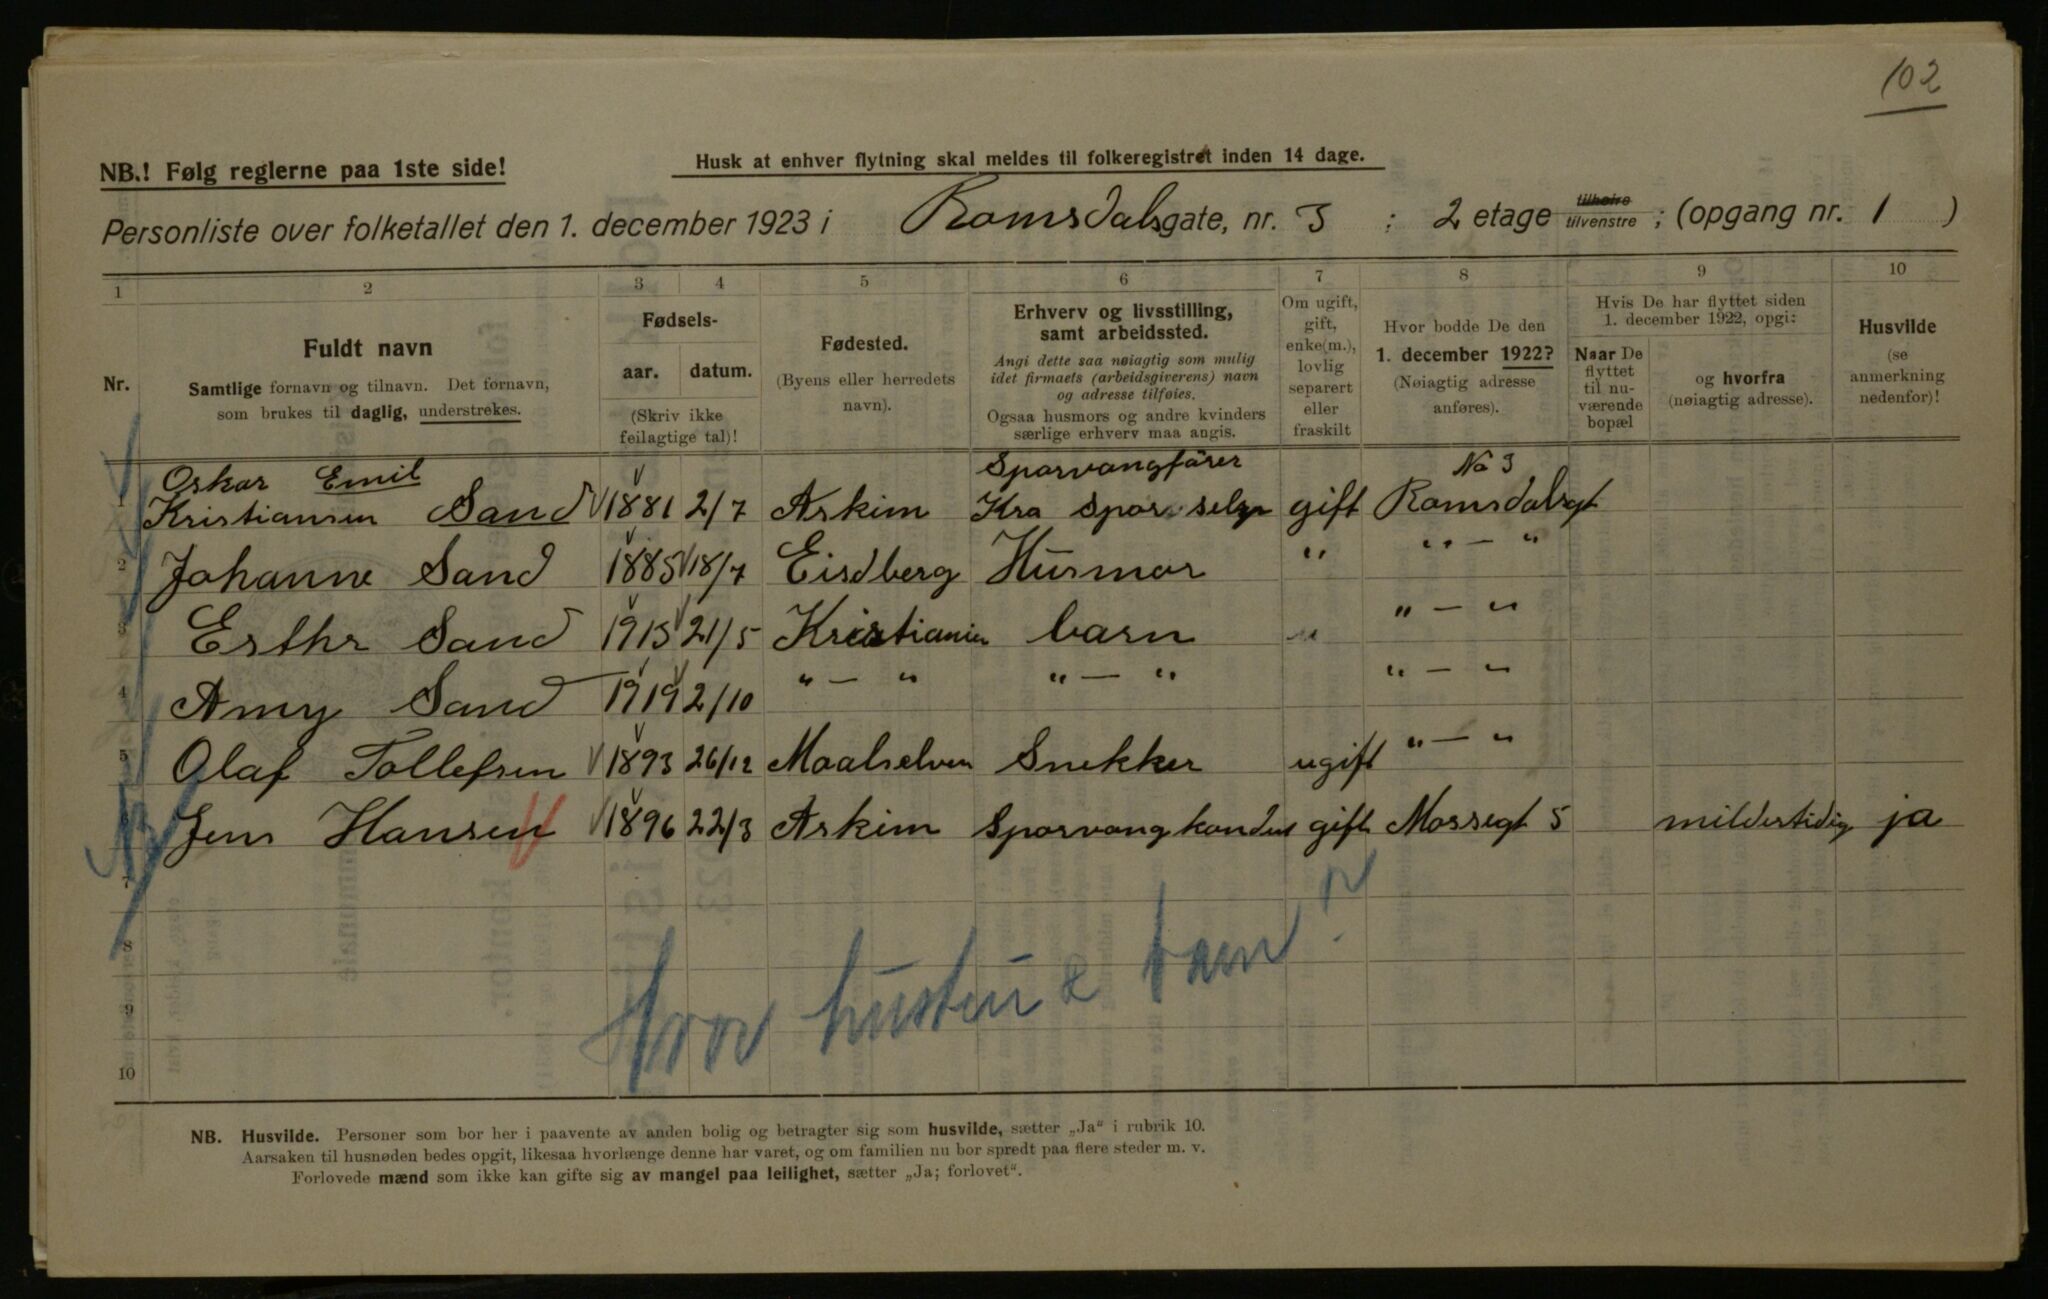 102
NB.! Følg reglerne paa 1ste side!
Husk at enhver flytning skal meldes til folkeregistret inden 14 dage.
Personliste over folketallet den 1. december 1923 i Romsdalsgate, nr. 3 : 2 etage tilhøire tilvenstre ; (opgang nr. 1 )
1 2 3 4 5 6 7 8 9 10
Nr.
Fuldt navn
Samtlige fornavn og tilnavn. Det fornavn,
som brukes til daglig, understrekes.
Fødsels-
aar. datum.
(Skriv ikke
feilagtige tal)!
Fødested.
(Byens eller herredets
navn).
Erhverv og livsstilling,
samt arbeidssted.
Angi dette saa nøiagtig som mulig
idet firmaets (arbeidsgiverens) navn
og adresse tilføies.
Ogsaa husmors og andre kvinders
særlige erhverv maa angis.
Om ugift,
gift,
enke(m.),
lovlig
separert
eller
fraskilt
Hvor bodde De den
1. december 1922?
(Nøiagtig adresse
anføres).
Hvis De har flyttet siden
1. december 1922, opgi:
Naar De
flyttet
til nu-
værende
bopæl
og hvorfra
(nøiagtig adresse).
Husvilde
(se
anmerkning
nedenfor)!
Oskar Emil Sporvangfører No 3
1 Kristiansen Sand 1881 2/7 Askim Kra Spor selsp gift Romsdalsgt
2 Johanne Sand 1885 18/7 Eisdberg Husmor " " — "
3 Esthr Sand 1915 21/5 Kristiania barn " " — "
4 Amy Sand 1919 2/10 " — " " — " " — "
5 Olaf Tollefsen 1893 26/12 Maalselven Snekker ugift " — "
6 Jens Hansen 1896 22/3 Askim Sporvangkondut gift Mossegt 5 mildertidig ja
7
8
9
10
Hvor hustru & barn?
NB. Husvilde. Personer som bor her i paavente av anden bolig og betragter sig som husvilde, sætter „Ja“ i rubrik 10.
Aarsaken til husnøden bedes opgit, likesaa hvorlænge denne har varet, og om familien nu bor spredt paa flere steder m. v.
Forlovede mænd som ikke kan gifte sig av mangel paa leilighet, sætter „Ja; forlovet“.